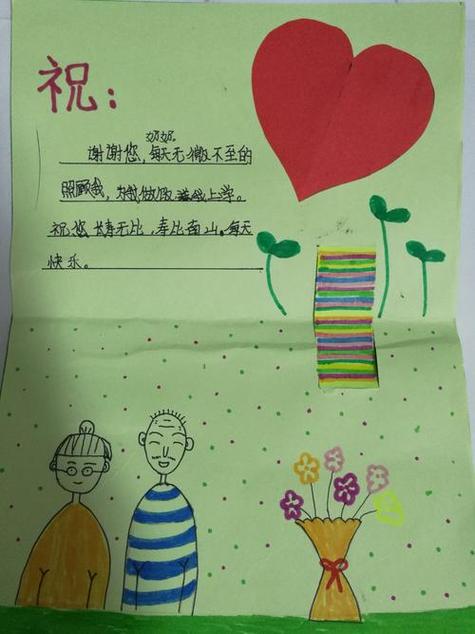 祝：
奶奶
谢谢您，每天无微不至的
照顾我，做饭送我上学。
祝您寿比南山。每天
快乐。